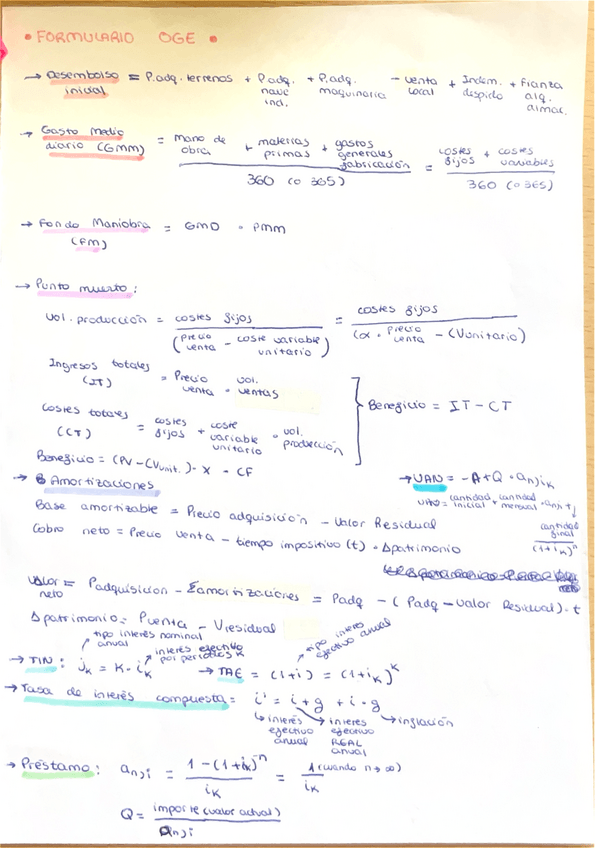 • FORMULARIO OGE •
→ Desembolso inicial = P.adq. terrenos + P.adq. nave ind. + P.adq. maquinaria - venta local + Indem. despido + Fianza alq. almac.
→ Gasto medio diario (GMM) = mano de obra + materias primas + gastos generales fabricación / 360 (o 365) = costes fijos + costes variables / 360 (o 365)
→ Fondo Maniobra (FM) = GMD · PMM
→ Punto muerto:
Vol. producción = costes fijos / (precio venta - coste variable unitario) = costes fijos / (α · precio venta - CVunitario)
Ingresos totales (IT) = Precio venta · vol. ventas
Costes totales (CT) = costes fijos + coste variable unitario · vol. producción
} Beneficio = IT - CT
Beneficio = (PV - CVunit.) · X - CF
→ VAN = -A + Q · an⌉ik
VAN = cantidad inicial + cantidad mensual · an⌉i + cantidad final / (1+ik)^n
→ Amortizaciones
Base amortizable = Precio adquisición - Valor Residual
Cobro neto = Precio venta - tiempo impositivo (t) · Δpatrimonio
Valor neto = Padquisicion - Σamortizaciones = Padq - (Padq - Valor Residual) · t
Δpatrimonio = Pventa - Vresidual
→ TIN: jk = k · ik
tipo interés nominal anual
interés efectivo por periodos k
→ TAE = (1+i) = (1+ik)^k
tipo interes efectivo anual
→ Tasa de interés compuesta = i' = i + g + i · g
interés efectivo anual
interes efectivo REAL anual
inflación
→ Préstamo: an⌉i = 1-(1+ik)^-n / ik = 1 (cuando n→∞) / ik
Q = importe (valor actual) / an⌉i